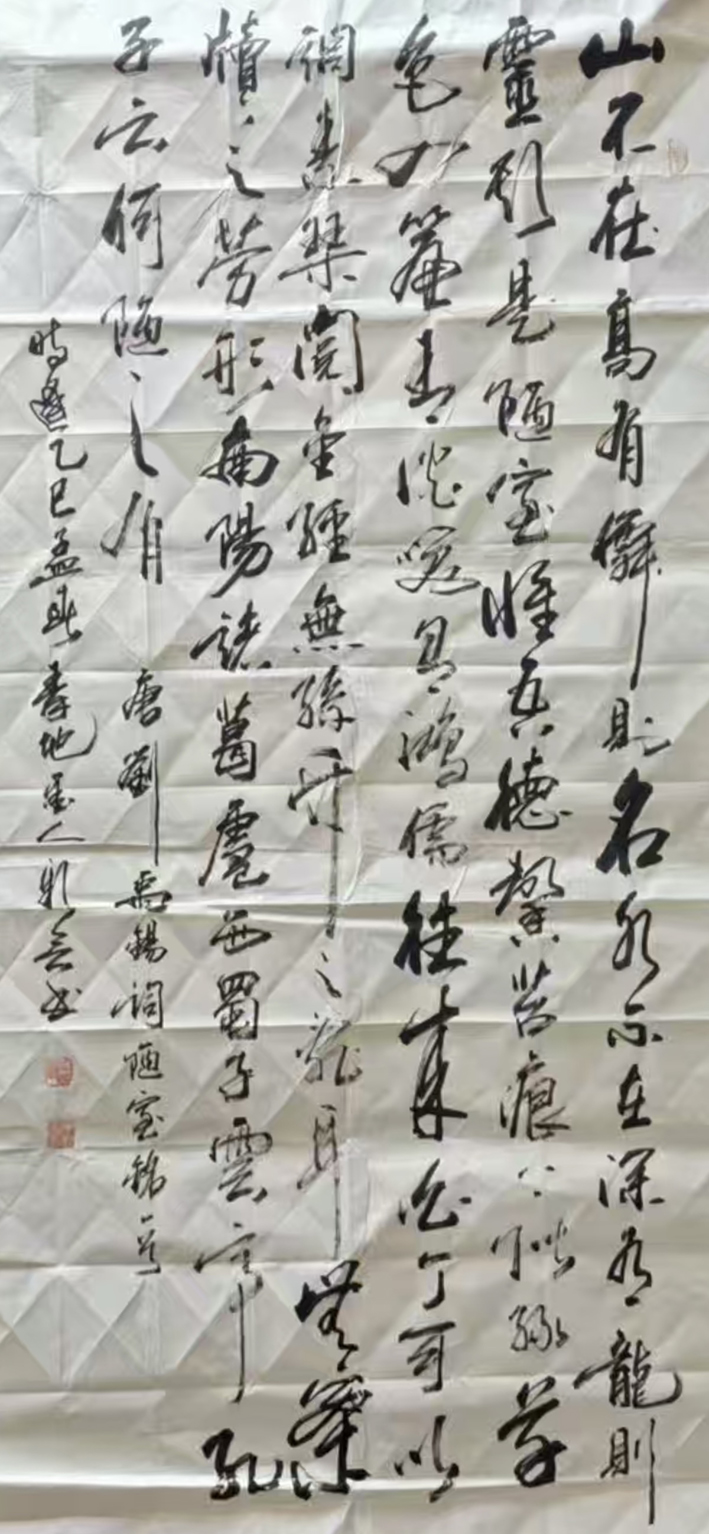 山不在高有僊則名水不在深有龍則
靈斯是陋室惟吾德馨苔痕上階緑草
色入簾青談笑有鴻儒往來白丁可以
調素琴閱金經無絲竹之亂耳無案
牘之勞形南陽諸葛廬西蜀子雲亭孔
子云何陋之有 唐劉禹錫詞陋室銘一首
時逢乙巳孟春 地墨人 書